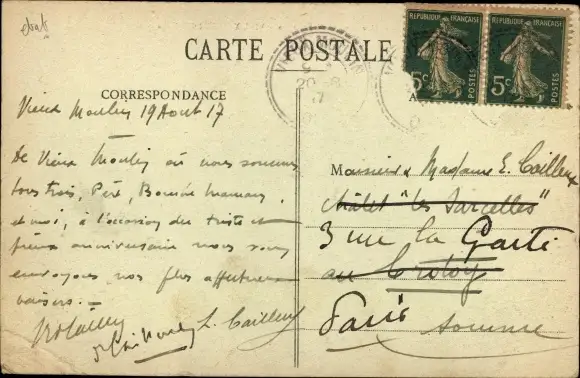 CARTE POSTALE
RÉPUBLIQUE FRANÇAISE
5c POSTES
RÉPUBLIQUE FRANÇAISE
5c POSTES
CORRESPONDANCE
Vieux Moulin 19 Aout 17
De Vieux Moulin où nous sommes
tous trois, Père, Bonne maman,
et moi, à l'occasion du triste et
pieux anniversaire nous vous
envoyons nos plus affectueux
baisers. —
L. Cailleux
Monsieur & Madame E. Cailleux
Châlet "les Sarcelles"
3 rue la
au Crotoy
Paris Somme